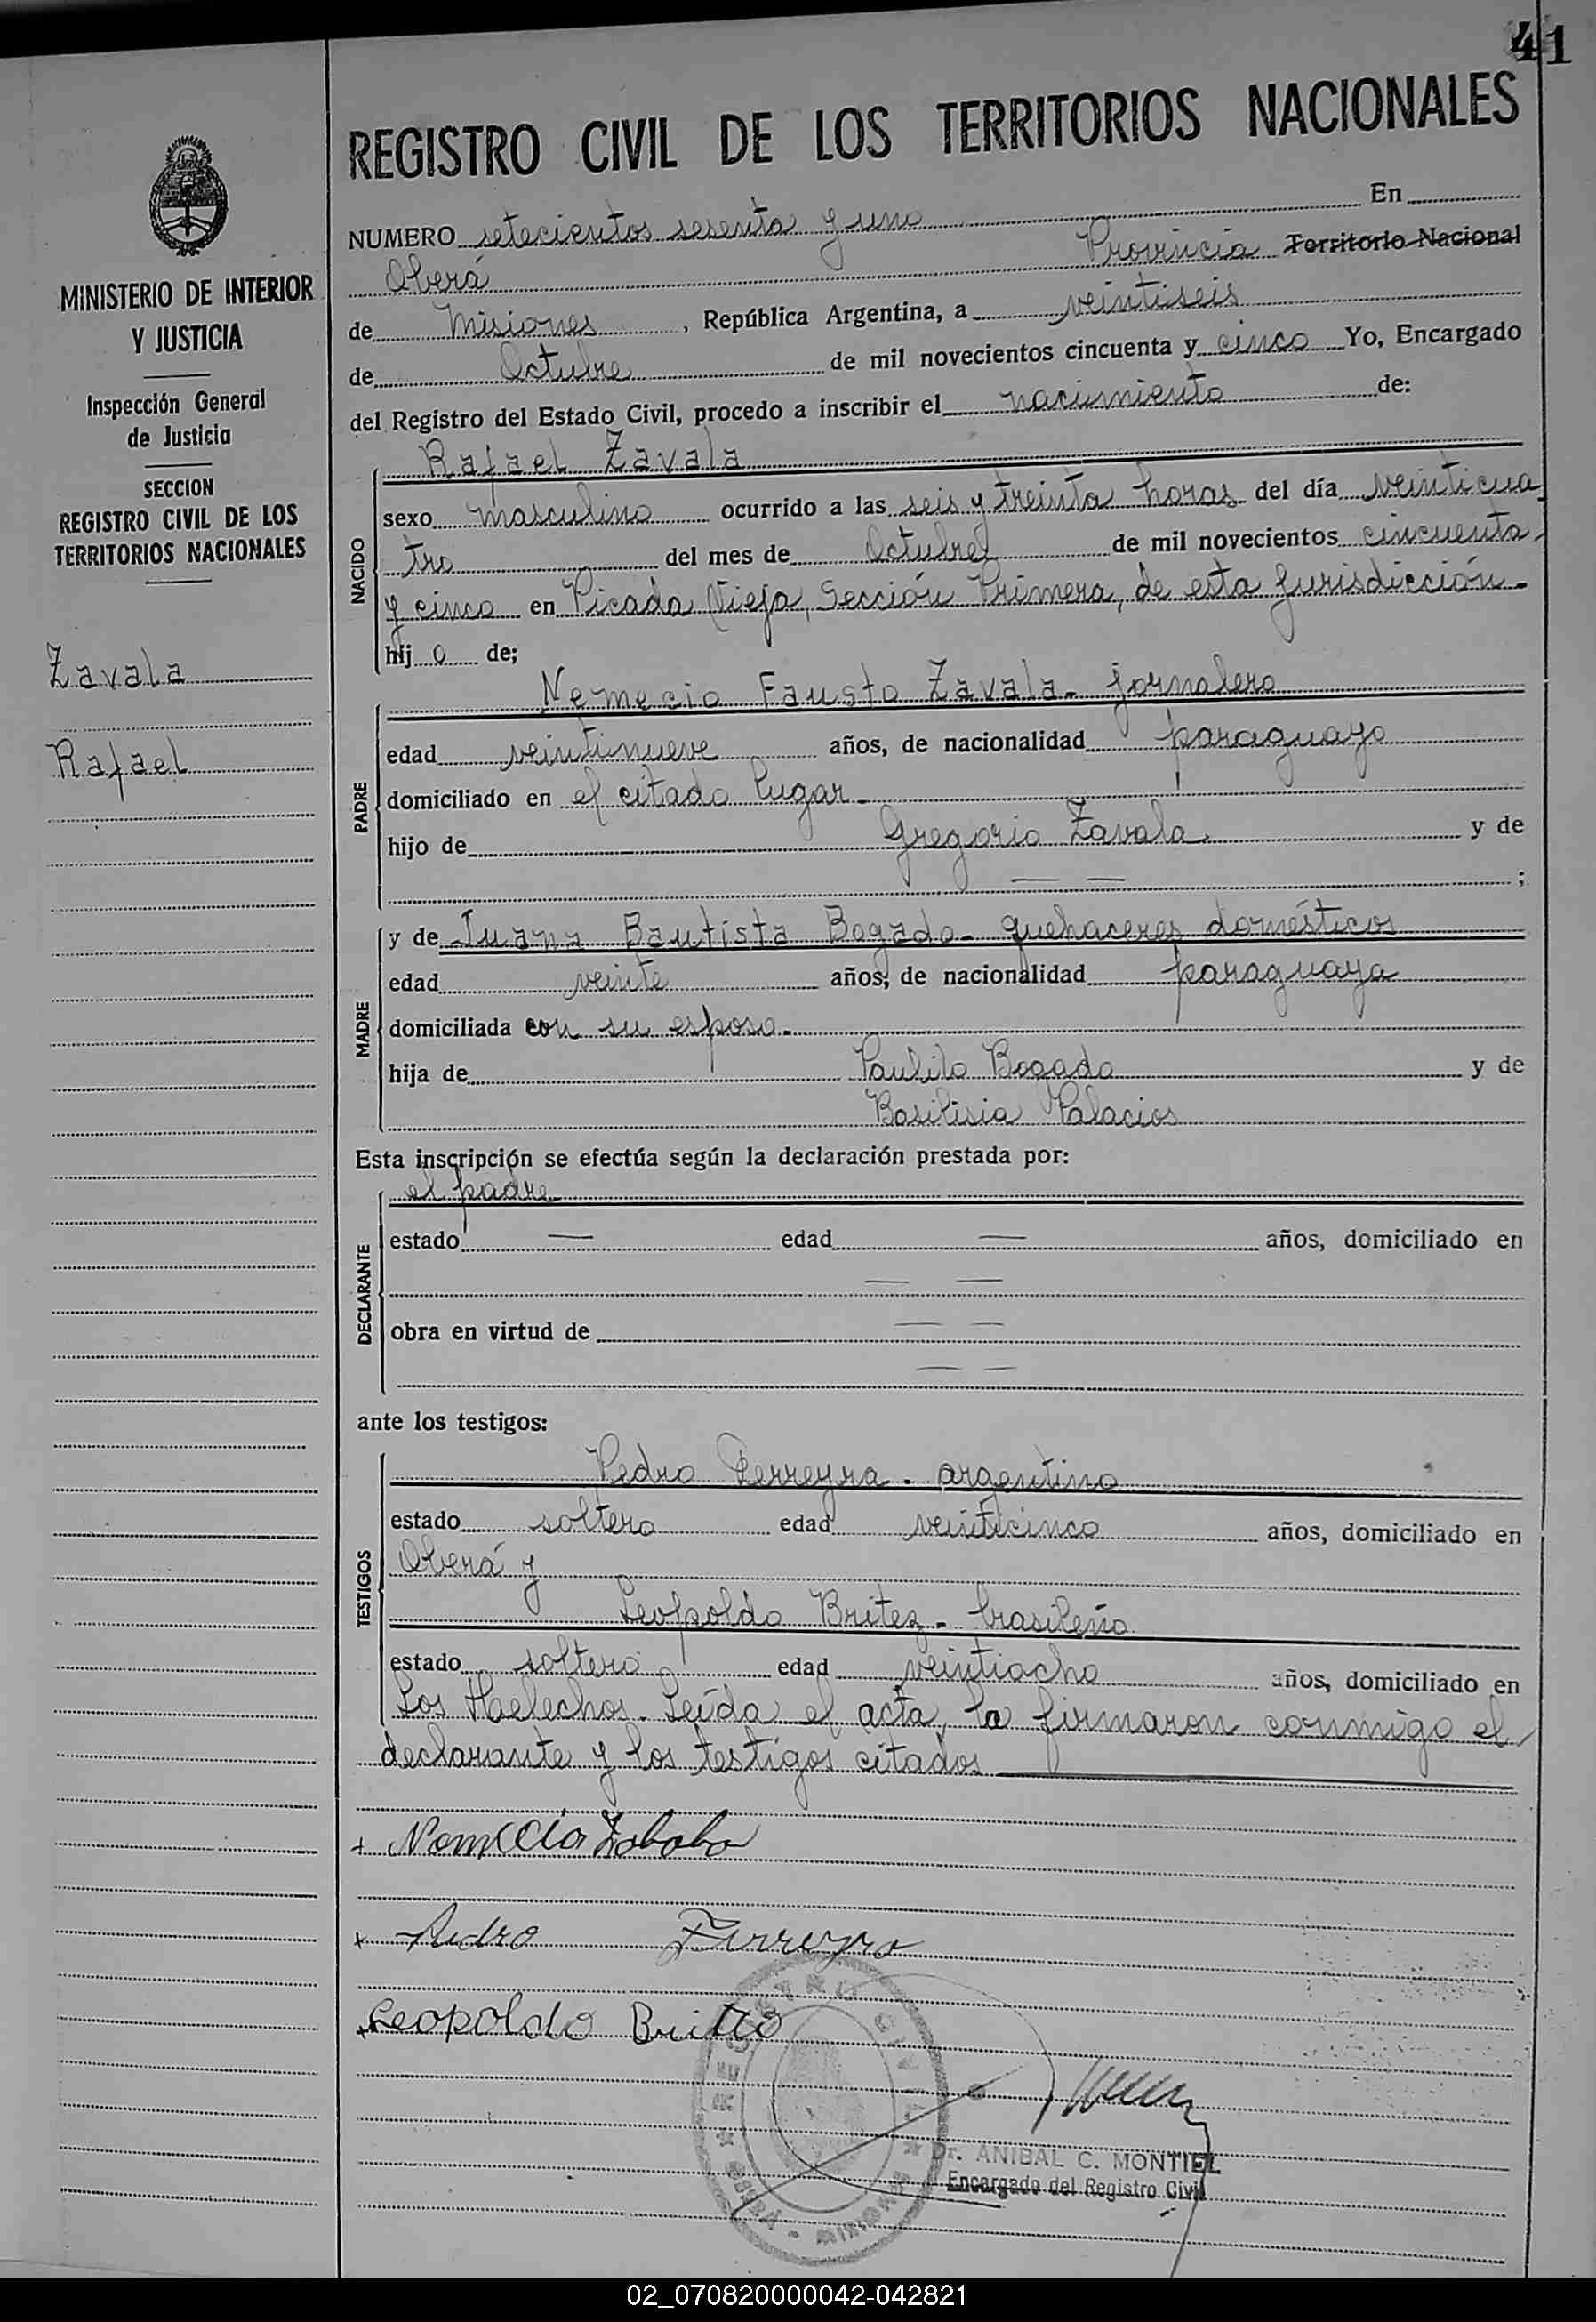 41
REGISTRO CIVIL DE LOS TERRITORIOS NACIONALES
MINISTERIO DE INTERIOR
Y JUSTICIA
Inspección General
de Justicia
SECCION
REGISTRO CIVIL DE LOS
TERRITORIOS NACIONALES
Zavala
Rafael
NUMERO setecientos sesenta y uno En
Oberá Provincia Territorio Nacional
de Misiones, República Argentina, a veintiseis
de Octubre de mil novecientos cincuenta y cinco Yo, Encargado
del Registro del Estado Civil, procedo a inscribir el nacimiento de:
NACIDO
Rafael Zavala
sexo masculino ocurrido a las seis y treinta horas del día veinticua
tro del mes de Octubre de mil novecientos cincuenta
y cinco en Picada Vieja, Sección Primera, de esta Jurisdicción.-
hij o de;
PADRE
Nemecio Fausto Zavala - jornalero
edad veintinueve años, de nacionalidad paraguayo
domiciliado en el citado lugar.-
hijo de Gregorio Zavala y de
— — ;
MADRE
y de Juana Bautista Bogado - quehaceres domésticos
edad veinte años, de nacionalidad paraguaya
domiciliada con su esposo.-
hija de Paulito Bogado y de
Basilisia Palacios
Esta inscripción se efectúa según la declaración prestada por:
DECLARANTE
el padre
estado — edad — años, domiciliado en
— —
obra en virtud de — —
— —
ante los testigos:
TESTIGOS
Pedro Ferreyra - argentino
estado soltero edad veinticinco años, domiciliado en
Oberá y
Leopoldo Britez - brasileño
estado soltero edad veintiocho años, domiciliado en
Los Helechos. Leída el acta, la firmaron conmigo el
declarante y los testigos citados
+ Nemecio Zabala
+ Pedro Ferreyra
+ Leopoldo Britto
REGISTRO CIVIL
Dr. ANIBAL C. MONTIEL
Encargado del Registro Civil
02_070820000042-042821